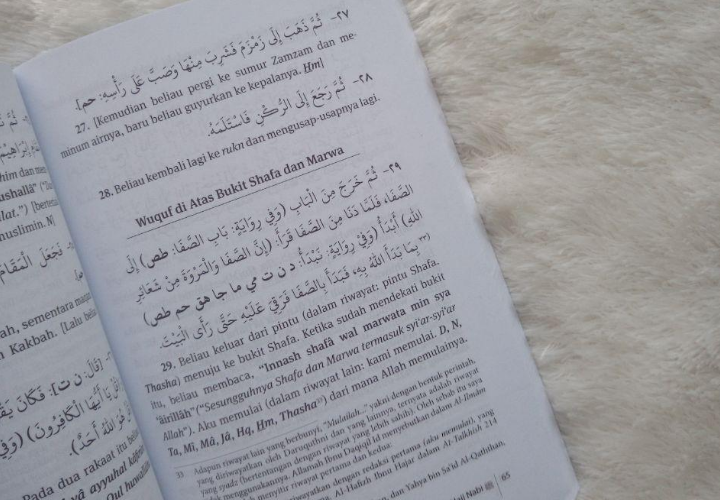 ـم نـ
إِبْرَاهِيْمَ
him dan me
ushallâ" ("D
llat.") [bertem
muslimin. N]
نَجَعَلَ الْمَقَامَ
ah, sementara maqam
n Kakbah. [Lalu beli
[قَالَ: ن ت]: فَكَانَ يَقْ
يَا أَيُّهَا الْكَافِرُوْنَ) (وَفِي
هُوَ اللهُ أَحَدٌ).
Pada dua rakaat itu be
yâ ayyuhal kâfir
Qul huwall
٢٧- ثُمَّ ذَهَبَ إِلَى زَمْزَمَ فَشَرِبَ مِنْهَا وَصَبَّ عَلَى رَأْسِهِ: حم].
27. [Kemudian beliau pergi ke sumur Zamzam dan me-
minum airnya, baru beliau guyurkan ke kepalanya. Hm]
٢٨- ثُمَّ رَجَعَ إِلَى الرُّكْنِ فَاسْتَلَمَهُ.
28. Beliau kembali lagi ke rukn dan mengusap-usapnya lagi.
Wuquf di Atas Bukit Shafa dan Marwa
٢٩- ثُمَّ خَرَجَ مِنَ الْبَابِ (وَفِي رِوَايَةٍ: بَابِ الصَّفَا: طص) إِلَى
الصَّفَا، فَلَمَّا دَنَا مِنَ الصَّفَا قَرَأَ: (إِنَّ الصَّفَا وَالْمَرْوَةَ مِنْ شَعَائِرِ
اللهِ) أَبْدَأُ (وَفِيْ رِوَايَةٍ: نَبْدَأُ: د ن ت مي ما جا هق حم طص)
(٣٣) بِمَا بَدَأَ اللهُ بِهِ، فَبَدَأَ بِالصَّفَا فَرَقِيَ عَلَيْهِ حَتَّى رَأَى الْبَيْتَ.
29. Beliau keluar dari pintu (dalam riwayat: pintu Shafa.
Thasha) menuju ke bukit Shafa. Ketika sudah mendekati bukit
itu, beliau membaca, "Innash shafâ wal marwata min sya
'âirillâh" ("Sesungguhnya Shafa dan Marwa termasuk syi'ar-syi'ar
Allah"). Aku memulai (dalam riwayat lain: kami memulai. D, N,
Ta, Mî, Mâ, Jâ, Hq, Hm, Thasha³³) dari mana Allah memulainya.
33 Adapun riwayat lain yang berbunyi, "Mulailah..." yakni dengan bentuk perintah,
yang diriwayatkan oleh Daruquthni dan yang lainnya, ternyata adalah riwayat
yang syadz (bertentangan dengan riwayat yang lebih sahih). Oleh sebab itu saya
menggunakannya. Allamah Ibnu Daqiqil Id menyebutkan dalam Al-Ilmâm
menyitir riwayat pertama dan kedua:
diriwayatkan dengan redaksi pertama (aku memulai), yang
Al-Hafizh Ibnu Hajar dalam Al-Talkhish 214
dan Yahya bin Sa'id Al-Qaththan,
Nabi ﷺ | 65